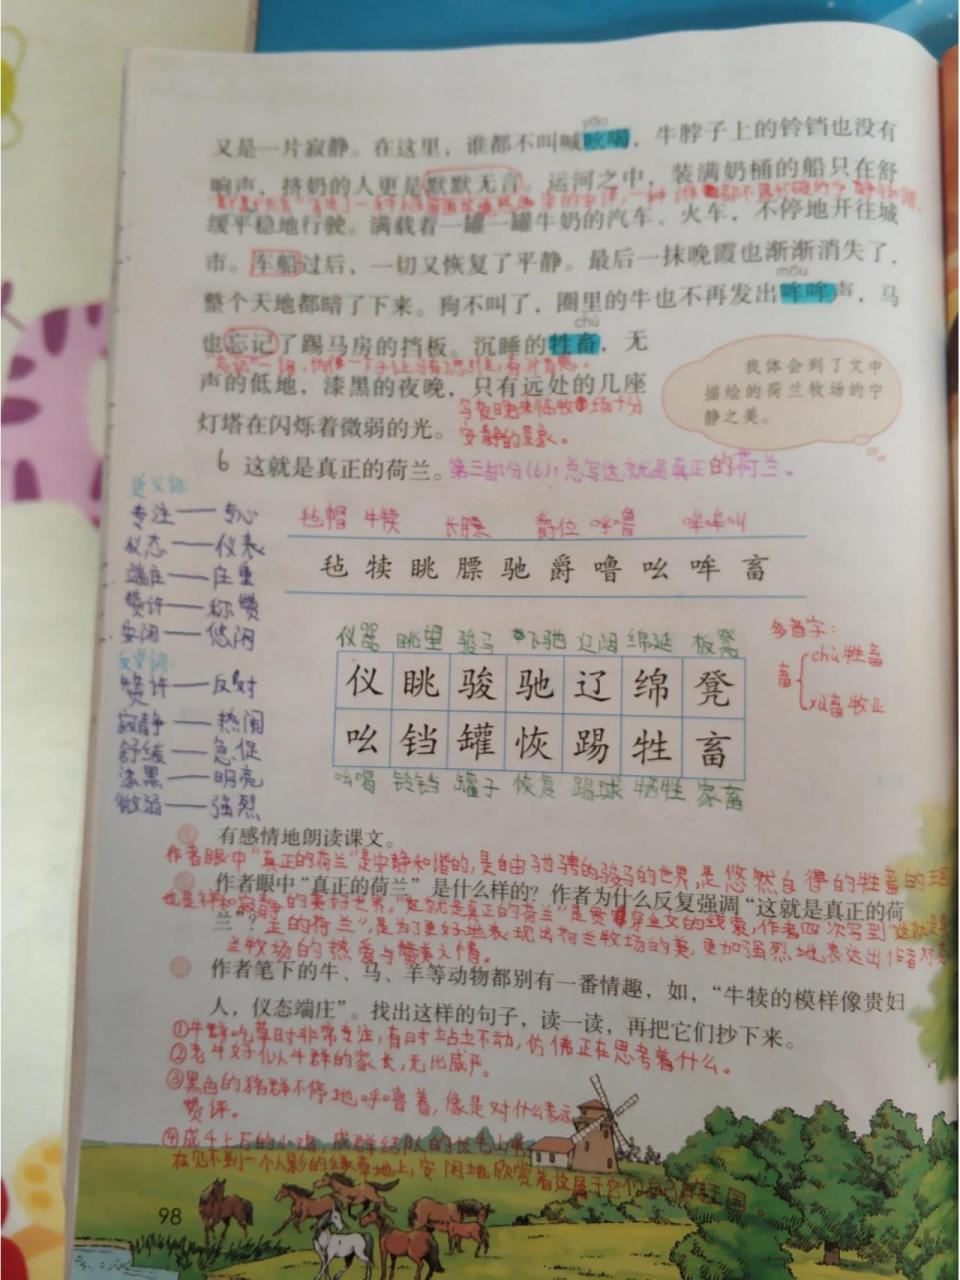 yāo
又是一片寂静。在这里，谁都不叫喊吆喝，牛脖子上的铃铛也没有
响声，挤奶的人更是默默无言。运河之中，装满奶桶的船只在舒
缓平稳地行驶。满载着一罐一罐牛奶的汽车、火车，不停地开往城
市。车船过后，一切又恢复了平静。最后一抹晚霞也渐渐消失了，
mōu
整个天地都暗了下来。狗不叫了，圈里的牛也不再发出哞哞声，马
chù
也忘记了踢马房的挡板。沉睡的牲畜，无
声的低地，漆黑的夜晚，只有远处的几座
写夜晚来临牧场十分
灯塔在闪烁着微弱的光。
安静的景象。
我体会到了文中
描绘的荷兰牧场的宁
静之美。
6 这就是真正的荷兰。第三部分(6)：总写这就是真正的荷兰。
近义词：
专注——专心
仪态——仪表
端庄——庄重
赞许——称赞
安闲——悠闲
反义词：
赞许——反对
寂静——热闹
舒缓——急促
漆黑——明亮
微弱——强烈
毡帽 牛犊 长膘 爵位 呼噜 哞哞叫
毡 犊 眺 膘 驰 爵 噜 吆 哞 畜
仪器 眺望 骏马 飞驰 辽阔 绵延 板凳
仪 眺 骏 驰 辽 绵 凳
吆 铛 罐 恢 踢 牲 畜
吆喝 铃铛 罐子 恢复 踢球 牺牲 家畜
多音字：
畜
chù 牲畜
xù 畜牧业
有感情地朗读课文。
作者眼中“真正的荷兰”是安静和谐的，是自由驰骋的骏马的世界，是悠然自得的牲畜的
作者眼中“真正的荷兰”是什么样的？作者为什么反复强调“这就是真正的荷
也是祥和寂静的美好世界。“这就是真正的荷兰”是贯穿全文的线索，作者四次写到“这就是
兰”？
正的荷兰”，是为了更好地表现出荷兰牧场的美，更加强烈地表达出作者对
兰牧场的热爱与赞美之情。
作者笔下的牛、马、羊等动物都别有一番情趣，如，“牛犊的模样像贵妇
人，仪态端庄”。找出这样的句子，读一读，再把它们抄下来。
①牛群吃草时非常专注，有时站立不动，仿佛正在思考着什么。
②老牛好似牛群的家长，无比威严。
③黑色的猪群不停地呼噜着，像是对什么表示
赞许。
④成千上万的小鸡，成群结队的长毛山羊
在见不到一个人影的绿草地上，安闲地欣赏着这属于它们自己的王国
98